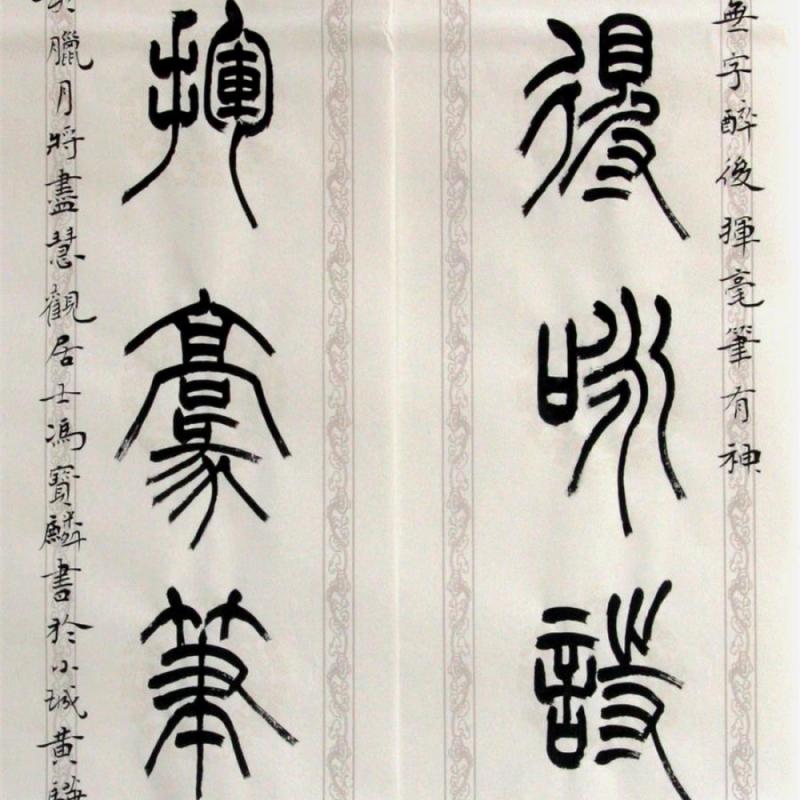 無字醉後揮毫筆有神
得詠詩
揮毫筆
臘月將盡慧觀居士馮寶麟書於小城黃